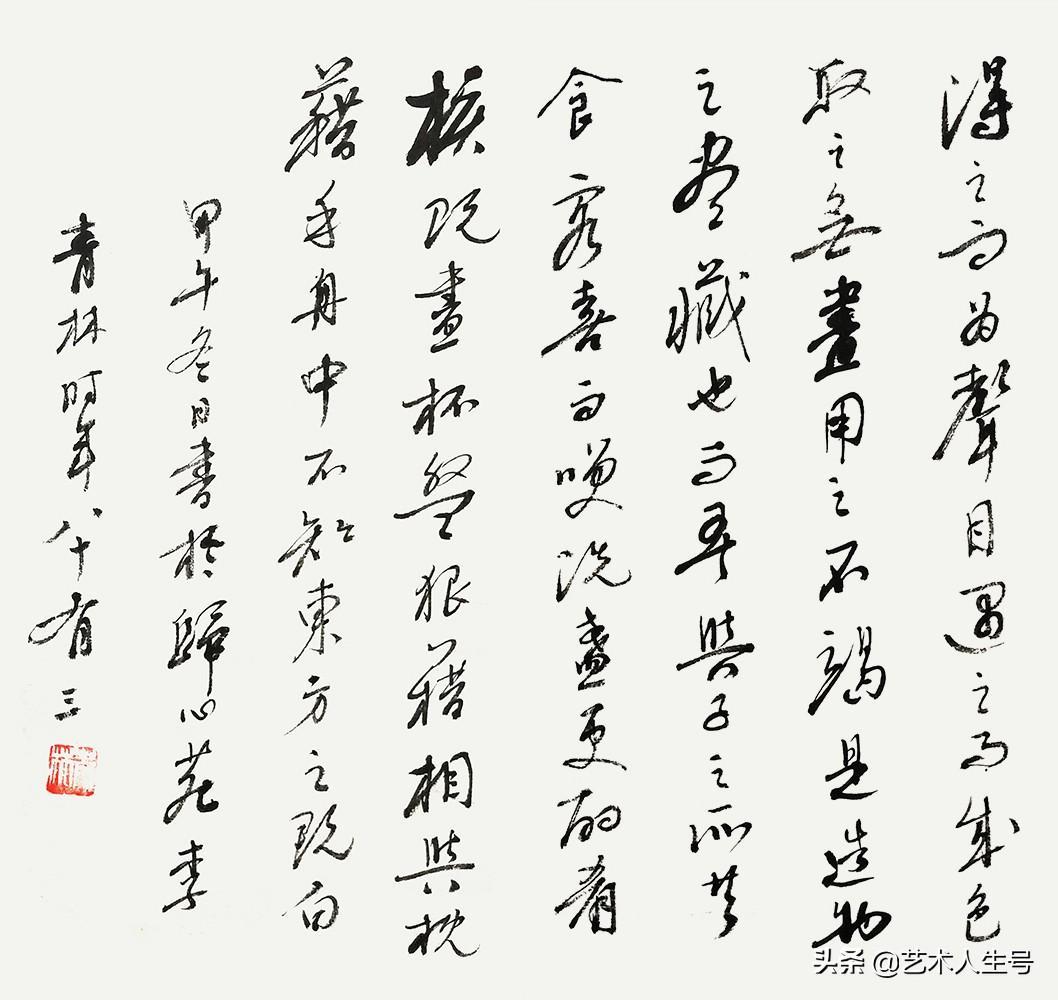 得之而為聲目遇之而成色
取之無盡用之不竭是造物
之盡藏也而吾與子之所共
食客喜而咲洗盞更酌肴
核既盡杯盤狼藉相與枕
藉乎舟中不知東方之既白
甲午冬日書於歸心苑李
青林时年八十有三
头条 @艺术人生号